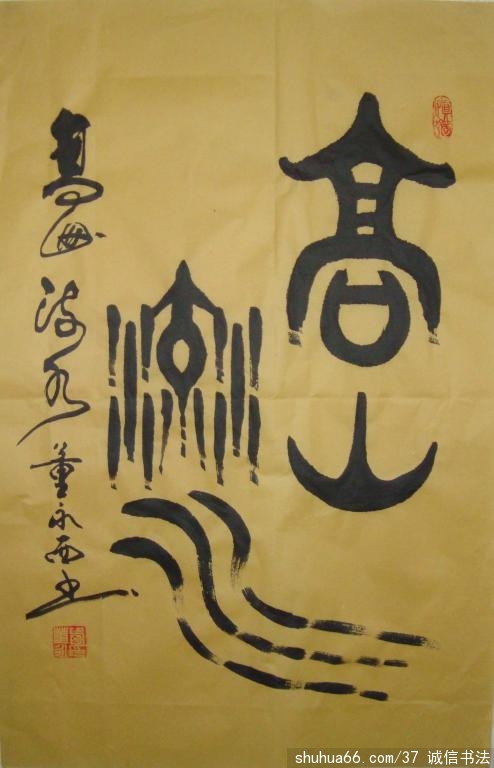 高山
流水
高山流水董永西书
shuhua66.com/37 诚信书法